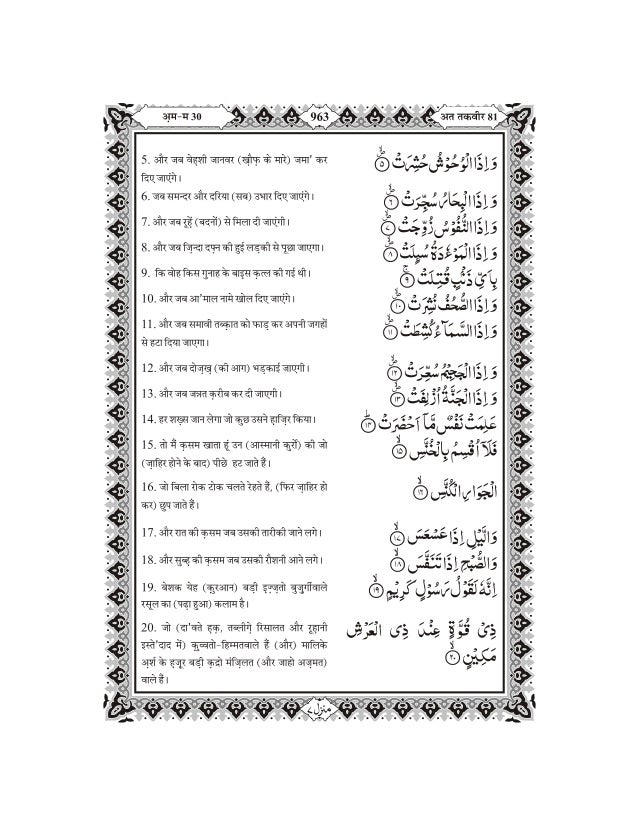 अ़म-म 30 963 अत तकवीर 81
5. और जब वेह़शी जानवर (ख़ौफ़ के मारे) जमा’ कर
दिए जाएंगे।
وَ اِذَا الْوُحُوْشُ حُشِرَتْ ۙ۝۵
6. जब समन्दर और दरिया (सब) उभार दिए जाएंगे।
وَ اِذَا الْبِحَارُ سُجِّرَتْ ۙ۝۶
7. और जब रूहे़ं (बदनों) से मिला दी जाएंगी।
وَ اِذَا النُّفُوْسُ زُوِّجَتْ ۙ۝۷
8. और जब ज़िन्दा दफ़्न की हुई लड़की से पूछा जाएगा।
وَ اِذَا الْمَوْءٗدَةُ سُىِٕلَتْ ۙ۝۸
9. कि वोह किस गुनाह के बाइ़स क़त्ल की गई थी।
بِاَیِّ ذَنْۢبٍ قُتِلَتْ ۚ۝۹
10. और जब आ’माल नामे खोल दिए जाएंगे।
وَ اِذَا الصُّحُفُ نُشِرَتْ ۙ۝۱۰
11. और जब समावी त़ब्क़ात को फाड़ कर अपनी जगहों
से हटा दिया जाएगा।
وَ اِذَا السَّمَآءُ كُشِطَتْ ۙ۝۱۱
12. और जब दोज़ख़ (की आग) भड़काई जाएगी।
وَ اِذَا الْجَحِیْمُ سُعِّرَتْ ۙ۝۱۲
13. और जब जन्नत क़रीब कर दी जाएगी।
وَ اِذَا الْجَنَّةُ اُزْلِفَتْ ۙ۝۱۳
14. हर शख़्स जान लेगा जो कुछ उसने ह़ाज़िर किया।
عَلِمَتْ نَفْسٌ مَّاۤ اَحْضَرَتْ ؕ۝۱۴
15. तो मैं क़सम खाता हूं उन (आस्मानी कुर्रों) की जो
(ज़ाहिर होने के बाद) पीछे हट जाते हैं।
فَلَاۤ اُقْسِمُ بِالْخُنَّسِ ۙ۝۱۵
16. जो बिला रोक टोक चलते रेहते हैं, (फिर ज़ाहिर हो
कर) छुप जाते हैं।
الْجَوَارِ الْكُنَّسِ ۙ۝۱۶
17. और रात की क़सम जब उसकी तारीकी जाने लगे।
وَ الَّیْلِ اِذَا عَسْعَسَ ۙ۝۱۷
18. और सुब्ह़ की क़सम जब उसकी रौशनी आने लगे।
وَ الصُّبْحِ اِذَا تَنَفَّسَ ۙ۝۱۸
19. बेशक येह (क़ुरआन) बड़ी इ़ज़्ज़तो बुज़ुर्गीवाले
रसूल का (पढ़ा हुआ) कलाम है।
اِنَّهٗ لَقَوْلُ رَسُوْلٍ كَرِیْمٍ ۙ۝۱۹
20. जो (दा’वते ह़क़, तब्लीग़े रिसालत और रूह़ानी
इस्ते’दाद में) क़ुव्वतो-हिम्मतवाले हैं (और) मालिके
अ़र्श के ह़ुज़ूर बड़ी क़द्रो मंज़िलत (और जाहो अ़ज़मत)
वाले हैं।
ذِیْ قُوَّةٍ عِنْدَ ذِی الْعَرْشِ
مَكِیْنٍ ۙ۝۲۰
منزل ۷